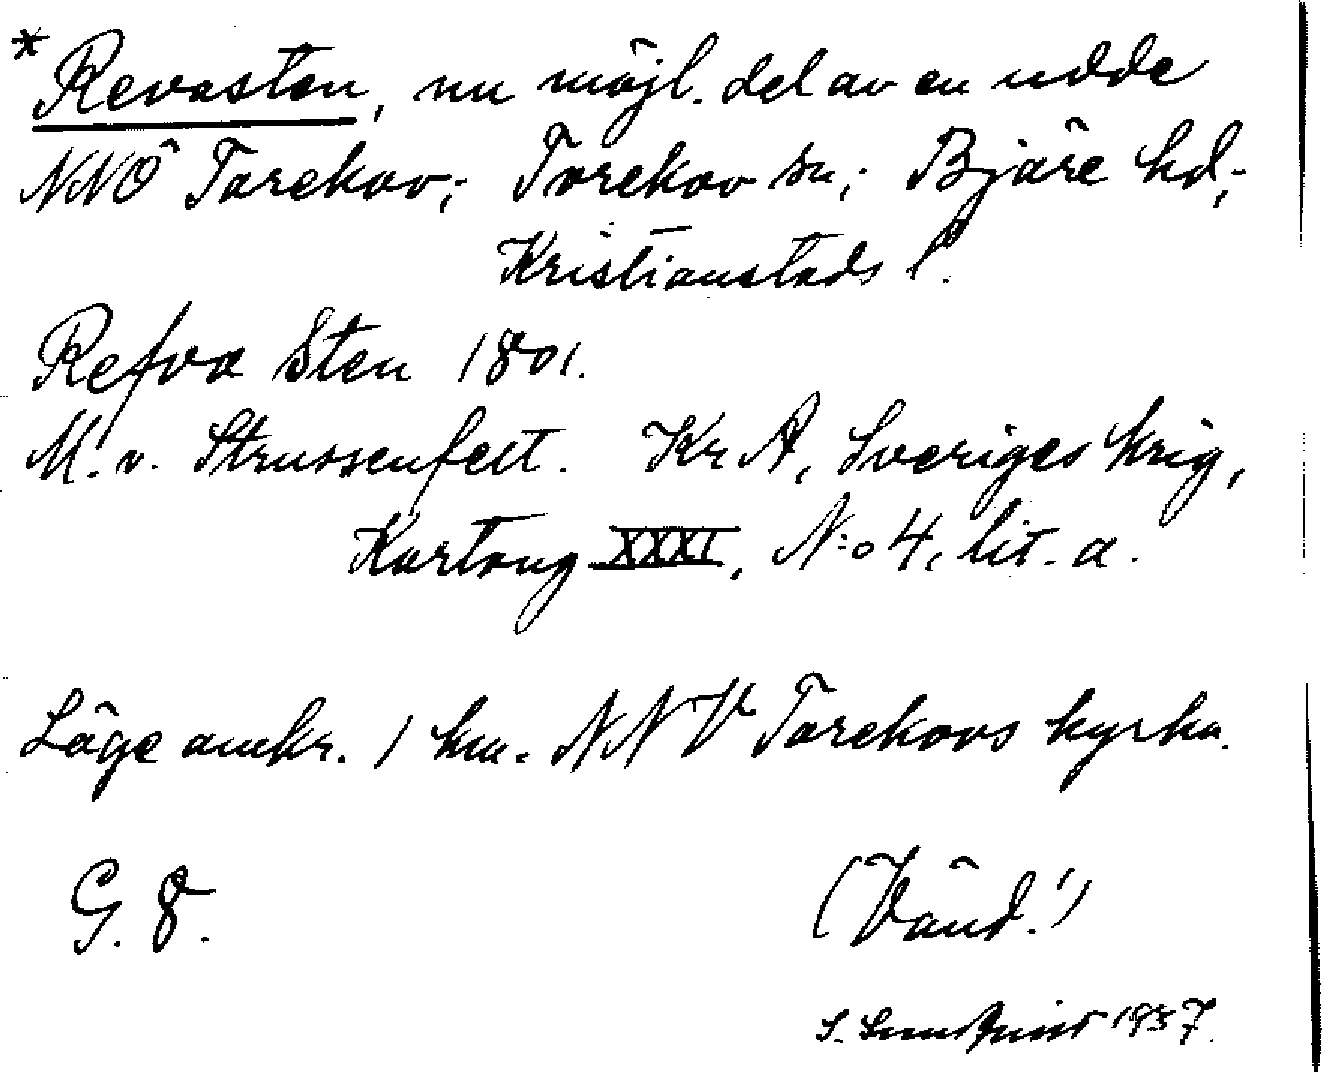 *Revasten, nu möjl. del av en udde
NNÖ Torekov; Torekov sn; Bjäre hd;
Kristianstads l.
Refva Sten 1801.
M. v. Strussenfelt. KrA, Sveriges krig,
Kartong XXXI, N:o 4, lit. a.
Läge omkr. 1 km. NNV Torekovs kyrka.
G. 8.
(Vänd!)
S. Lundquist 1937